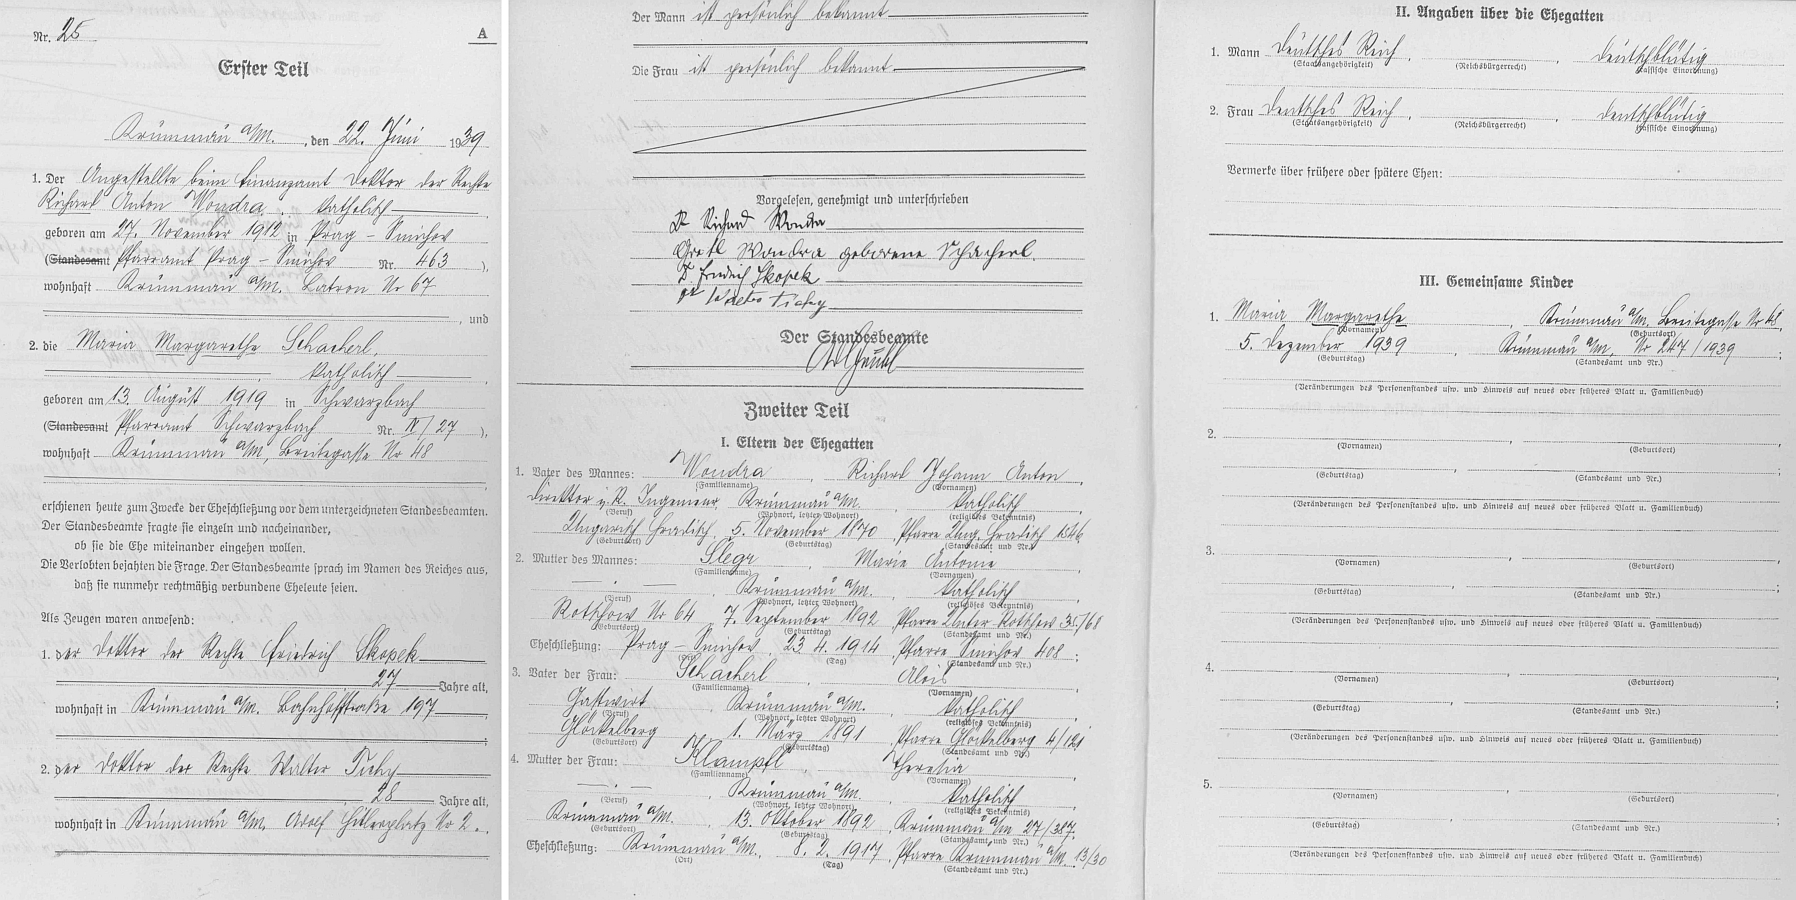 Nr. 25
A
Erster Teil
Krummau a/M. , den 22. Juni 1939
1. Der Angestellte beim Finanzamt Doktor der Rechte
Richard Anton Wondra, katholisch
geboren am 27. November 1912 in Prag - Smichov
(Standesamt Pfarramt Prag - Smichov Nr. 463 ),
wohnhaft Krummau a/M. Latron Nr 67
, und
2. die Maria Margarethe Schacherl,
katholisch
geboren am 13. August 1919 in Schwarzbach
(Standesamt Pfarramt Schwarzbach Nr. IV/27 ),
wohnhaft Krummau a/M, Breitegasse Nr 48
erschienen heute zum Zwecke der Eheschließung vor dem unterzeichneten Standesbeamten.
Der Standesbeamte fragte sie einzeln und nacheinander,
ob sie die Ehe miteinander eingehen wollen.
Die Verlobten bejahten die Frage. Der Standesbeamte sprach im Namen des Reiches aus,
daß sie nunmehr rechtmäßig verbundene Eheleute seien.
Als Zeugen waren anwesend:
1. der Doktor der Rechte Friedrich Skopek
27 Jahre alt,
wohnhaft in Krummau a/M. Bahnhofstraße 197
;
2. der Doktor der Rechte Walter Tichy
28 Jahre alt,
wohnhaft in Krummau a/M, Adolf Hitlerplatz Nr 2.
Der Mann ist persönlich bekannt
Die Frau ist persönlich bekannt
Vorgelesen, genehmigt und unterschrieben
Dr Richard Wondra
Gretl Wondra geborene Schacherl.
Dr Friedrich Skopek
Dr Walter Tichy
Der Standesbeamte
Zweiter Teil
I. Eltern der Ehegatten
1. Vater des Mannes: Wondra , Richard Johann Anton ,
(Familienname) (Vornamen)
Direktor i. R. Ingenieur, Krummau a/M. , katholisch ,
(Beruf) (Wohnort, letzter Wohnort) (religiöses Bekenntnis)
Ungarisch Hradisch, 5. November 1870 , Pfarre Ung. Hradisch 1546
(Geburtsort) (Geburtstag) (Standesamt und Nr.)
2. Mutter des Mannes: Slegr , Marie Antonie ,
(Familienname) (Vornamen)
Krummau a/M. katholisch ,
(Beruf) (Wohnort, letzter Wohnort) (religiöses Bekenntnis)
Rotschow Nr 64 7. September 1892 Pfarre Unter Rotschow 35/68
(Geburtsort) (Geburtstag) (Standesamt und Nr.)
Eheschließung: Prag - Smichov , 23. 4. 1914 , Pfarre Smichov 408 ;
(Ort) (Tag) (Standesamt und Nr.)
3. Vater der Frau: Schacherl , Alois ,
(Familienname) (Vornamen)
Gastwirt , Krummau a/M. , katholisch ,
(Beruf) (Wohnort, letzter Wohnort) (religiöses Bekenntnis)
Glöckelberg , 1. März 1891 , Pfarre Glöckelberg 4/121
(Geburtsort) (Geburtstag) (Standesamt und Nr.)
4. Mutter der Frau: Klampfl , Theresia ,
(Familienname) (Vornamen)
Krummau a/M. , katholisch ,
(Beruf) (Wohnort, letzter Wohnort) (religiöses Bekenntnis)
Krummau a/M. , 13. Oktober 1892 , Krummau a/M 27/387.
(Geburtsort) (Geburtstag) (Standesamt und Nr.)
Eheschließung: Krummau a/M. , 8. 2. 1917 , Pfarre Krummau a/M. 13/30
(Ort) (Tag) (Standesamt und Nr.)
II. Angaben über die Ehegatten
1. Mann Deutsches Reich , , deutschblütig
(Staatsangehörigkeit) (Reichsbürgerrecht) (rassische Einordnung)
2. Frau Deutsches Reich , , deutschblütig
(Staatsangehörigkeit) (Reichsbürgerrecht) (rassische Einordnung)
Vermerke über frühere oder spätere Ehen:
III. Gemeinsame Kinder
1. Maria Margarethe , Krummau a/M. Breitegasse Nr 48,
(Vornamen) (Geburtsort)
5. Dezember 1939 , Krummau a/M, Nr 247/1939 ;
(Geburtstag) (Standesamt und Nr.)
(Veränderungen des Personenstandes usw. und Hinweis auf neues oder früheres Blatt u. Familienbuch)
2. , ,
(Vornamen) (Geburtsort)
, ;
(Geburtstag) (Standesamt und Nr.)
(Veränderungen des Personenstandes usw. und Hinweis auf neues oder früheres Blatt u. Familienbuch)
3. , ,
(Vornamen) (Geburtsort)
, ;
(Geburtstag) (Standesamt und Nr.)
(Veränderungen des Personenstandes usw. und Hinweis auf neues oder früheres Blatt u. Familienbuch)
4. , ,
(Vornamen) (Geburtsort)
, ;
(Geburtstag) (Standesamt und Nr.)
(Veränderungen des Personenstandes usw. und Hinweis auf neues oder früheres Blatt u. Familienbuch)
5. , ,
(Vornamen) (Geburtsort)
, ;
(Geburtstag) (Standesamt und Nr.)
(Veränderungen des Personenstandes usw. und Hinweis auf neues oder früheres Blatt u. Familienbuch)